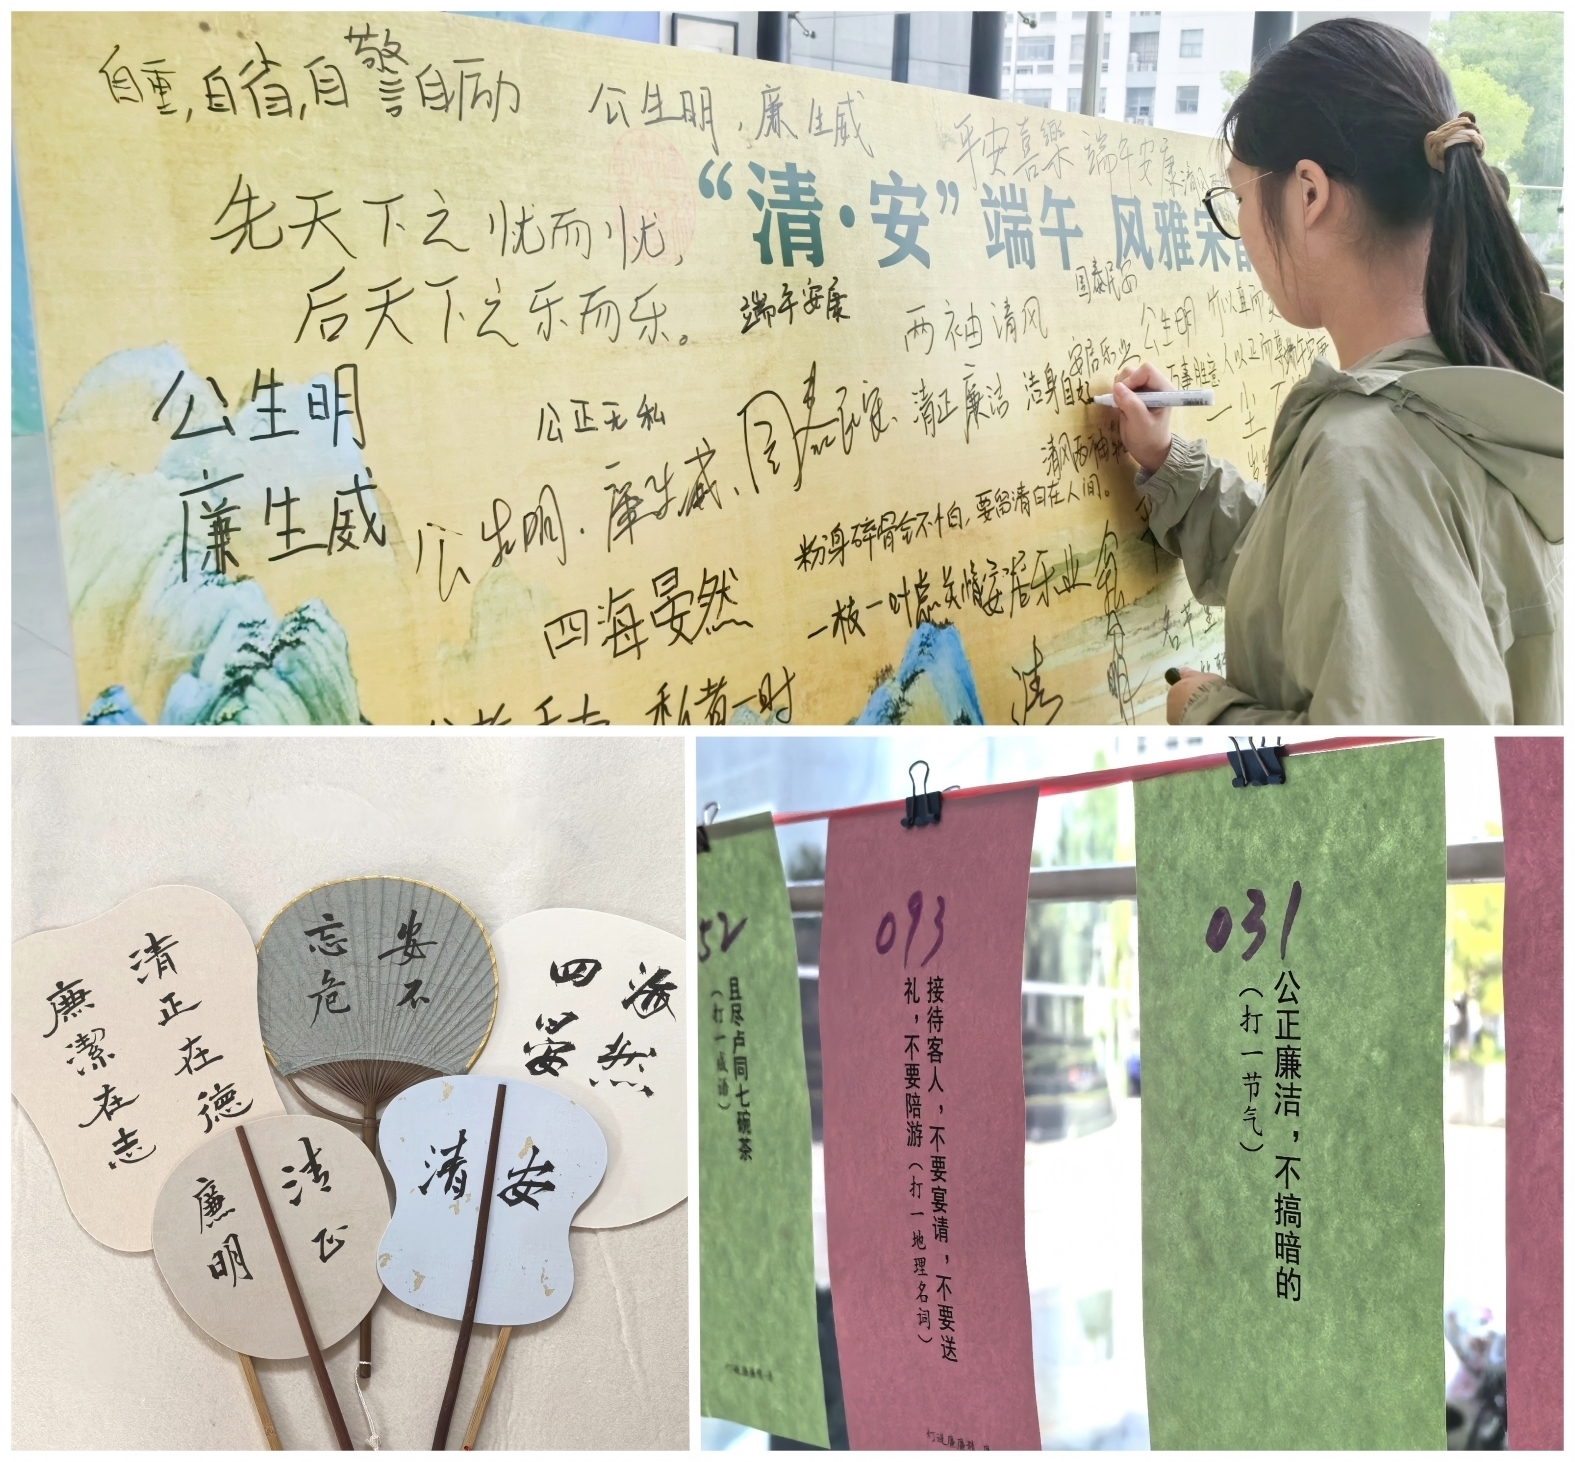 自重,自省,自警自励
公生明,廉生威
平安喜樂 端午安康
先天下之忧而忧,
后天下之乐而乐。
“清·安”端午 风雅宋
端午安康
国泰民安
两袖清风
公生明
公生明
廉生威
公正无私
公生明.廉生威、国泰民安、
清正廉洁
洁身自好
安居乐业
万事胜意
人以正而尊
端午安康
清风两袖
粉身碎骨全不怕,要留清白在人间。
一枝一叶总关情
安居乐业
四海晏然
私者一时
清
清正在德
廉潔在志
安不
忘危
四海
晏然
清正
廉明
清安
52
且尽卢同七碗茶
(打一成语)
093
接待客人,不要宴请,不要送
礼,不要陪游(打一地理名词)
031
公正廉洁,不搞暗的
(打一节气)